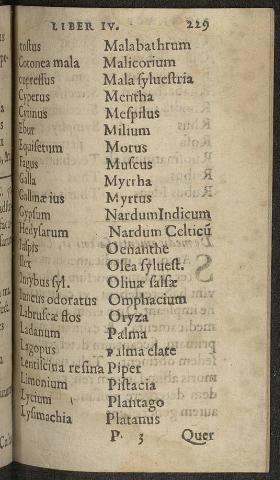 LIBER IV. 229
costus Malabathrum
Cotonea mala Malicorium
cupressus Mala syluestria
Cyperus Mentha
Cytinus Mespilus
Ebur Milium
Equisetum Morus
Fagus Muscus
Galla Myrrha
Gallinæ ius Myrtus
Gypsum Nardum Indicum
Hedysarum Nardum Celticū
Iaspis Oenanthe
Ilex Olea syluest.
Intybus syl. Oliuæ salsæ
Iuncus odoratus Omphacium
Labruscæ flos Oryza
Ladanum Palma
Lagopus Palma elate
Lentiscina resina Piper
Limonium Pistacia
Lycium Plantago
Lysimachia Platanus
P. 3 Quer